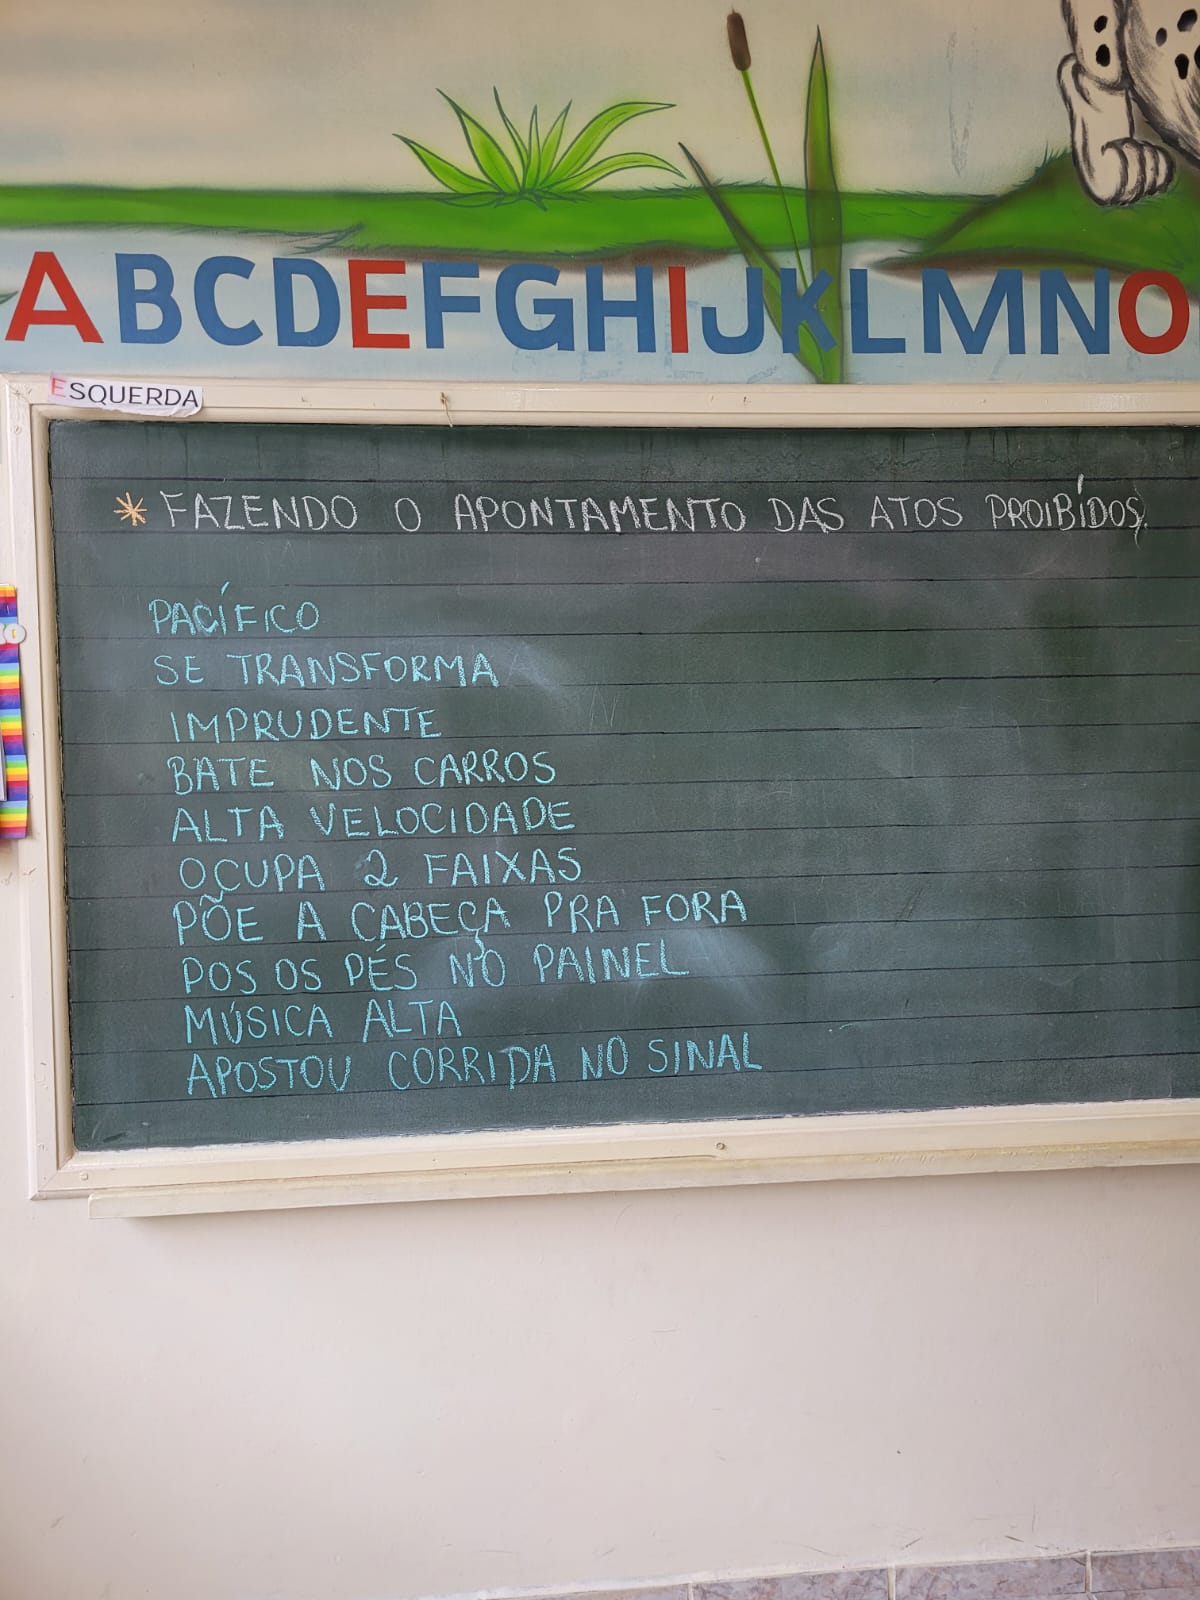 ABCDEFGHIJKLMNO
ESQUERDA
* FAZENDO O APONTAMENTO DAS ATOS PROIBÍDOS.
PACÍFICO
SE TRANSFORMA
IMPRUDENTE
BATE NOS CARROS
ALTA VELOCIDADE
OCUPA 2 FAIXAS
PÕE A CABEÇA PRA FORA
POS OS PÉS NO PAINEL
MÚSICA ALTA
APOSTOU CORRIDA NO SINAL